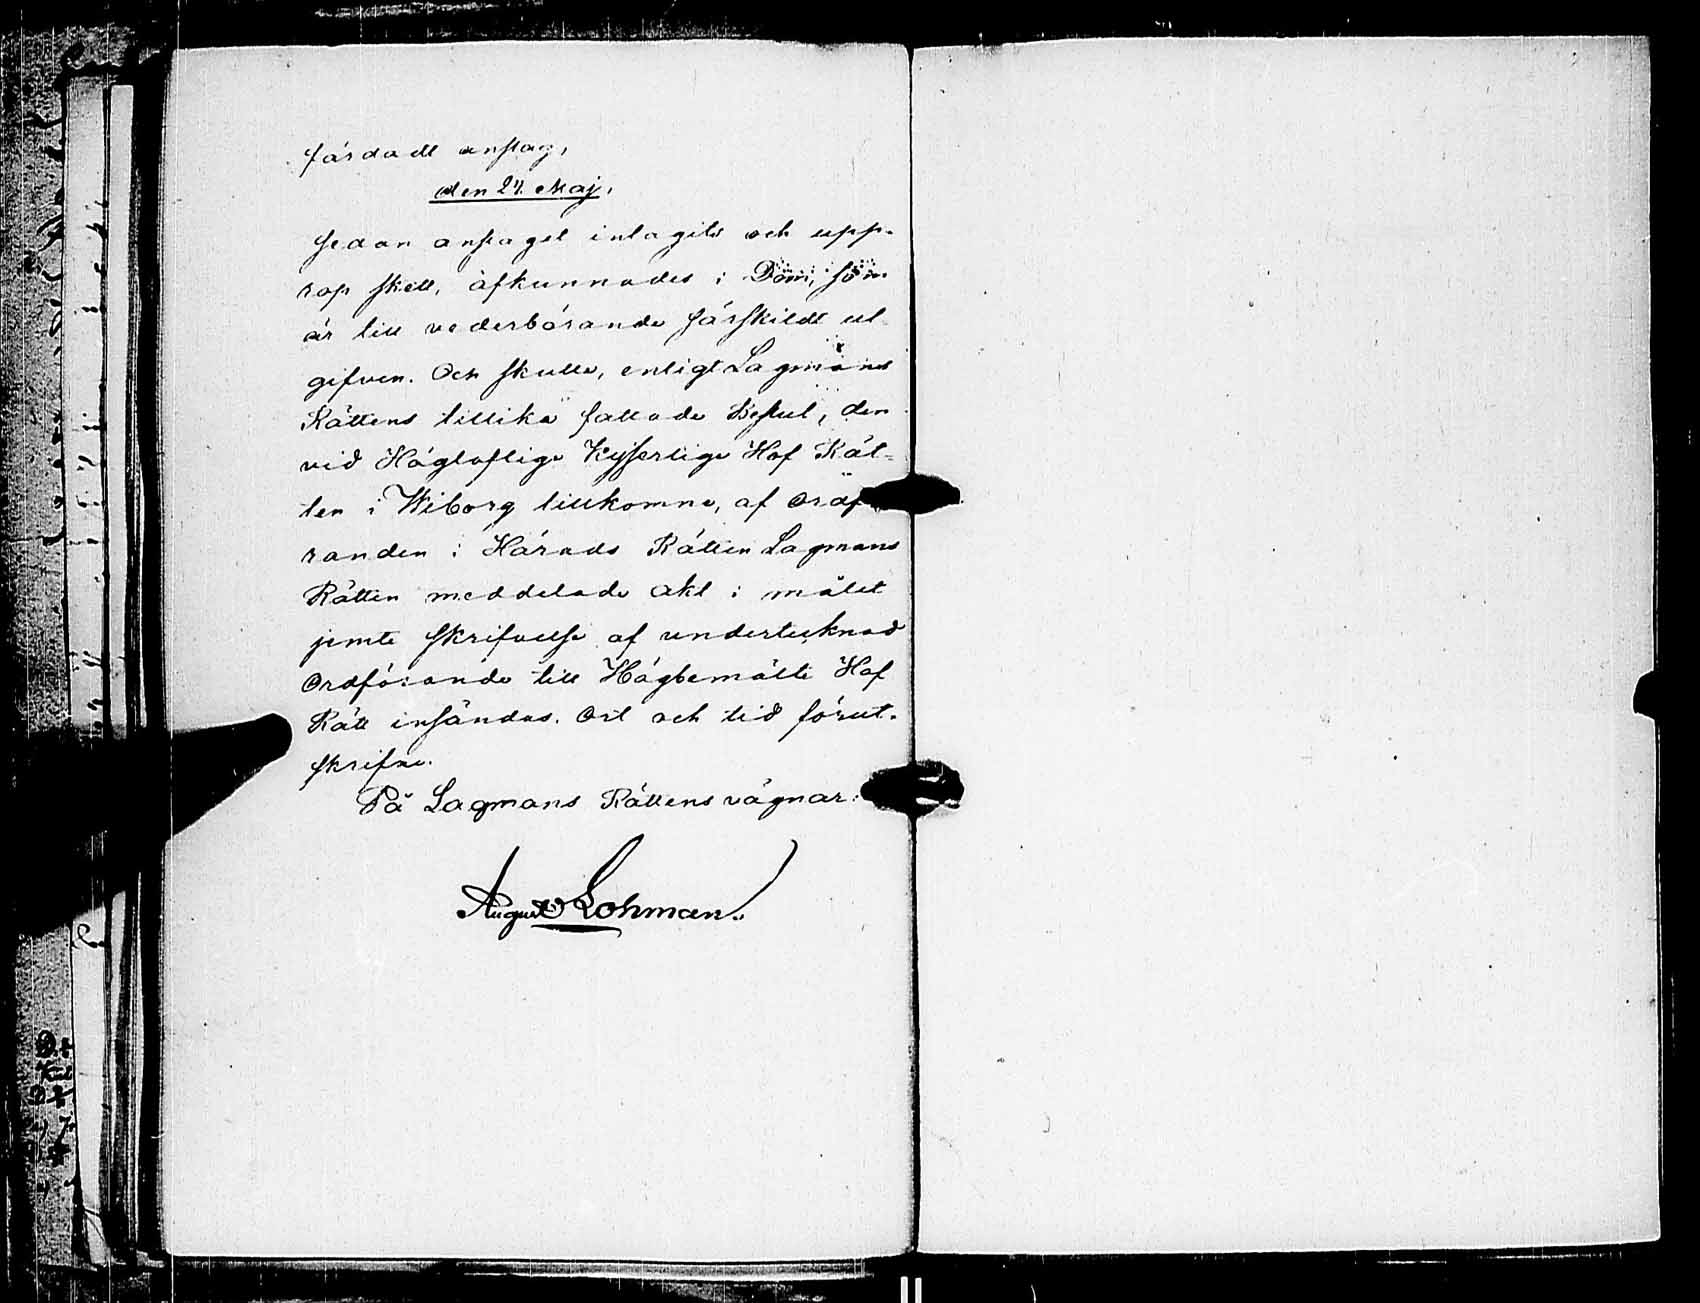 färdadt anslag,
den 27. Maj,
Sedan anslaget intagits och upp-
rop skett, afkunnades i Dom, som
är till vederbörande särskildt ut-
gifven. Och skulle, enligt Lagmans
Rättens tillika fattade Beslut, den
vid Högloflige Kejserlige Hof Rät-
ten i Wiborg tillkomne, af Ordfö
randen i Härads Rätten Lagmans
Rätten meddelade akt i målet
jemte skrifvelse af undertecknad
Ordförande till Högbemälte Hof
Rätt insändas. Ort och tid förut-
skrifne.
På Lagmans Rättens vägnar:
August Lohman.